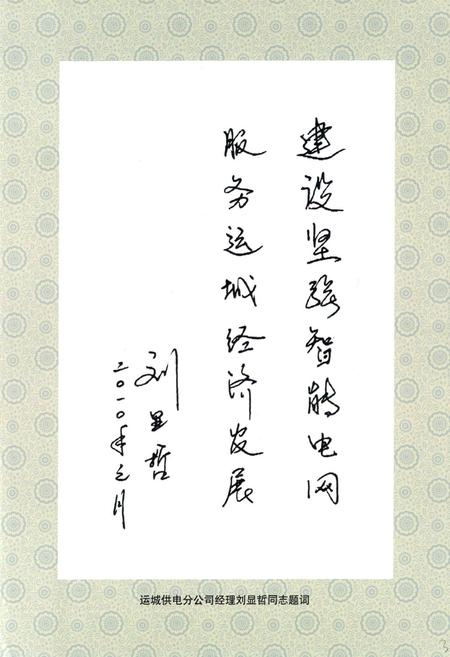 建设坚强智能电网
服务运城经济发展
刘显哲
二〇一〇年元月
运城供电分公司经理刘显哲同志题词
3